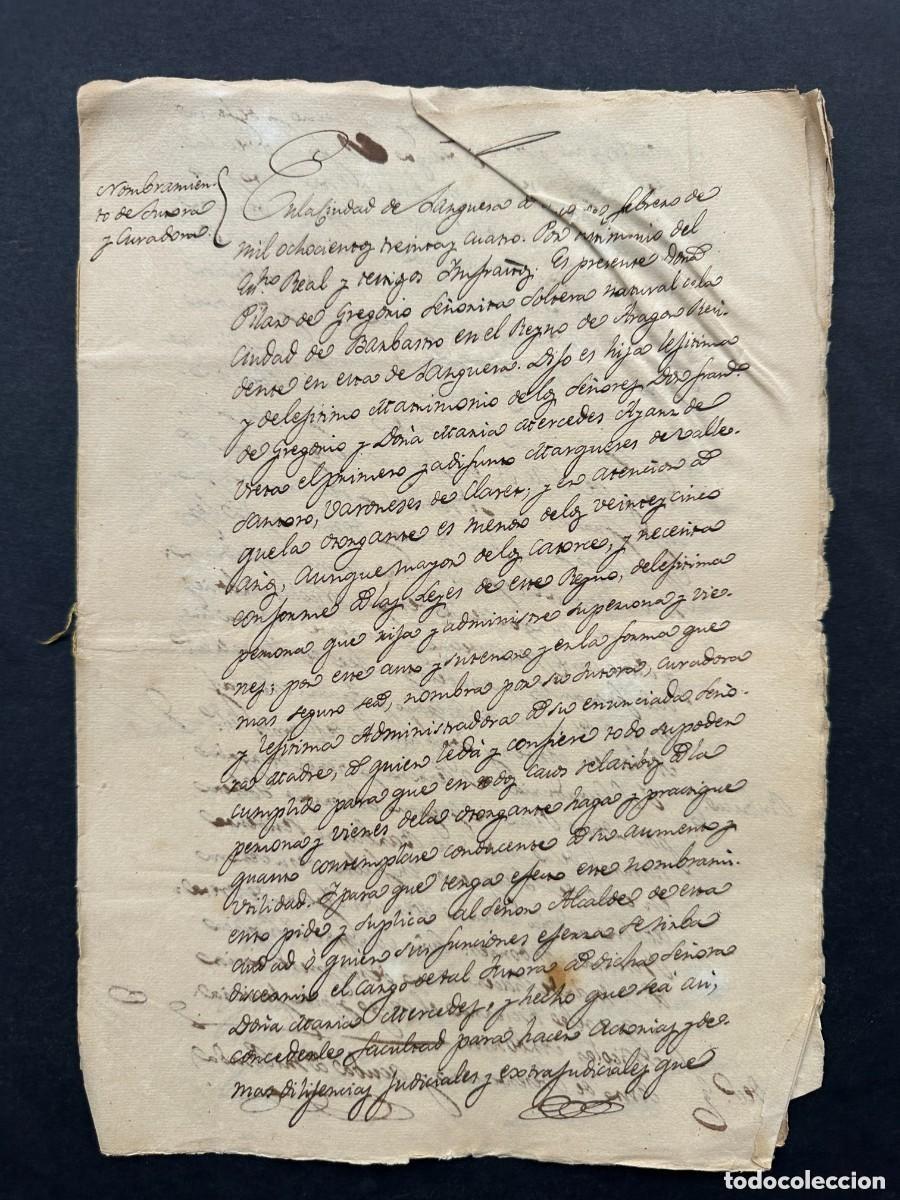 Nombramien-
to de Tutora
y Curadora.
En la Ciudad de Sanguesa a 19 de febrero de
mil ochocientos treinta y cuatro. Por testimonio del
Es.no Real y testigos Infraitos; Es presente Doña
Pilar de Gregorio Señorita Soltera natural de la
Ciudad de Barbastro en el Reyno de Aragon Resi-
dente en esta de Sanguesa. Dijo es hija lejitima
y de lejitimo Matrimonio de los Señores Don Fran.co
de Gregorio y Doña Maria Mercedes Ayanz de
Ureta el primero ya difunto Marqueses de Valle-
Santoro, Varoneses de Claret; y en atencion a
que la otorgante es menor de los veinte y cinco
años, aunque mayor de los catorce, y necesita
conforme a las Leyes de este Reyno, de lejitima
persona que rija y administre su persona y vie-
nes; por este auto y su tenor y en la forma que
mas seguro sea, nombra por su tutora, curadora
y lejitima Administradora a su enunciada Seño-
ra Madre, a quien le dá y confiere todo su poder
cumplido para que en todos casos relatibos a la
persona y vienes de la otorgante haga y practique
quanto contemplare conducente a su aumento y
utilidad. Y para que tenga efecto este nombrami-
ento pide y suplica al Señor Alcalde de esta
ciudad ó quien sus funciones ejerza se sirba
discernir el cargo de tal tutora a dicha Señora
Doña Maria Mercedes, y hecho que sea asi,
concederle facultad para hacer Autorias y de-
mas dilijencias judiciales y extrajudiciales que
todocoleccion